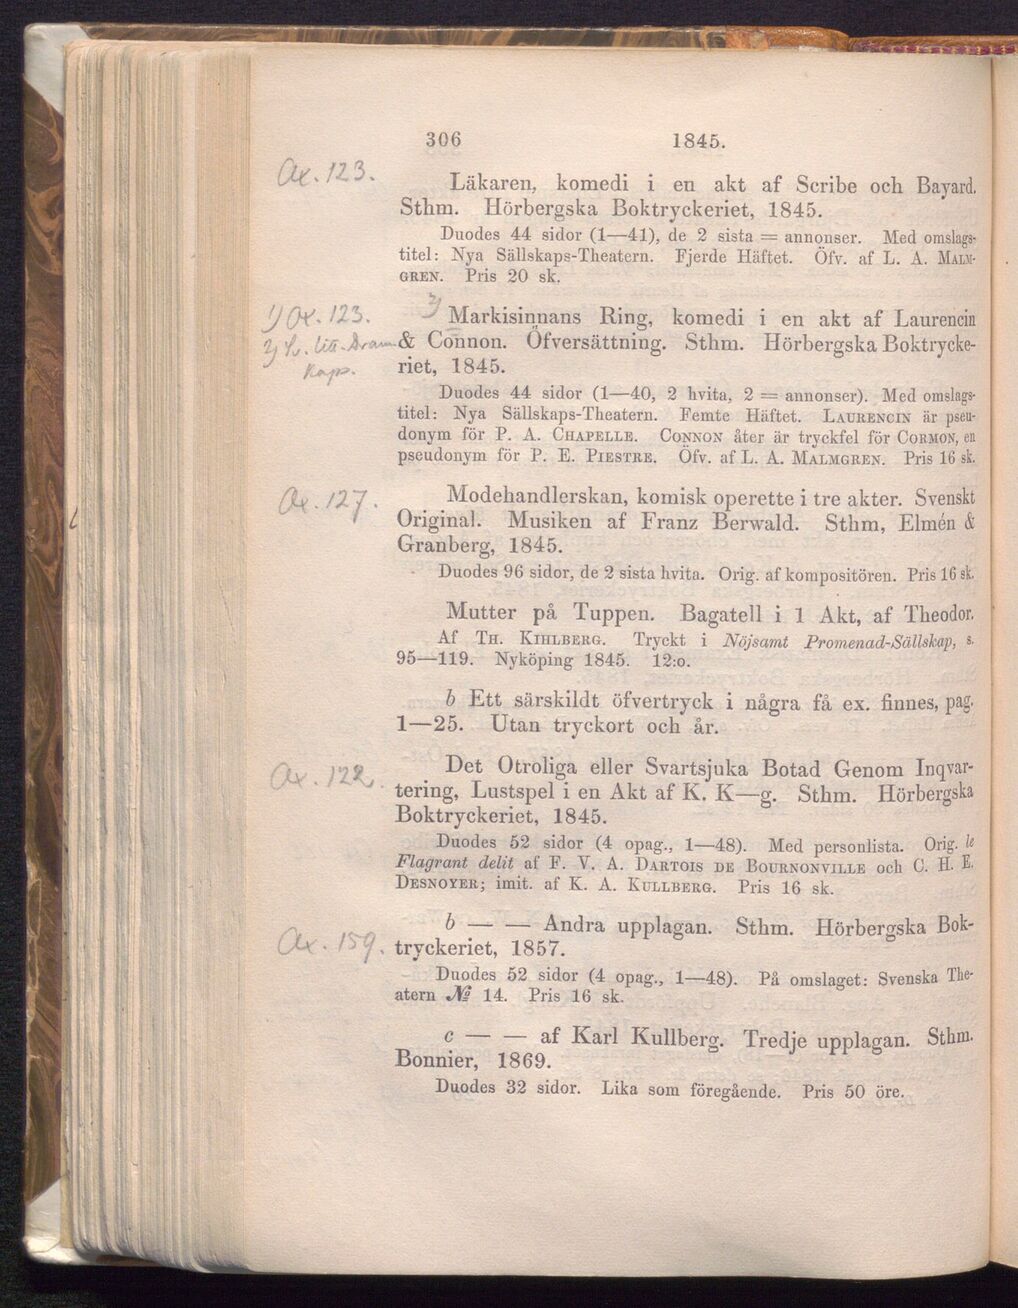 306 1845.
Ax. 123.
Läkaren, komedi i en akt af Scribe och Bayard.
Sthm. Hörbergska Boktryckeriet, 1845.
Duodes 44 sidor (1—41), de 2 sista = annonser. Med omslags-
titel: Nya Sällskaps-Theatern. Fjerde Häftet. Öfv. af L. A. MALM-
GREN. Pris 20 sk.
1) Ax. 123. 2) Markisinnans Ring, komedi i en akt af Laurencin
& Connon. Öfversättning. Sthm. Hörbergska Boktrycke-
riet, 1845.
Duodes 44 sidor (1—40, 2 hvita, 2 = annonser). Med omslags-
titel: Nya Sällskaps-Theatern. Femte Häftet. LAURENCIN är pseu-
donym för P. A. CHAPELLE. CONNON åter är tryckfel för CORMON, en
pseudonym för P. E. PIESTRE. Öfv. af L. A. MALMGREN. Pris 16 sk.
Ax. 127.
Modehandlerskan, komisk operette i tre akter. Svenskt
Original. Musiken af Franz Berwald. Sthm, Elmén &
Granberg, 1845.
Duodes 96 sidor, de 2 sista hvita. Orig. af kompositören. Pris 16 sk.
Mutter på Tuppen. Bagatell i 1 Akt, af Theodor.
Af TH. KIHLBERG. Tryckt i Nöjsamt Promenad-Sällskap, s.
95—119. Nyköping 1845. 12:o.
b Ett särskildt öfvertryck i några få ex. finnes, pag.
1—25. Utan tryckort och år.
Ax. 122.
Det Otroliga eller Svartsjuka Botad Genom Inqvar-
tering, Lustspel i en Akt af K. K—g. Sthm. Hörbergska
Boktryckeriet, 1845.
Duodes 52 sidor (4 opag., 1—48). Med personlista. Orig. le
Flagrant delit af F. V. A. DARTOIS DE BOURNONVILLE och C. H. E.
DESNOYER; imit. af K. A. KULLBERG. Pris 16 sk.
b — — Andra upplagan. Sthm. Hörbergska Bok-
Ax. 159. tryckeriet, 1857.
Duodes 52 sidor (4 opag., 1—48). På omslaget: Svenska The-
atern № 14. Pris 16 sk.
c — — af Karl Kullberg. Tredje upplagan. Sthm.
Bonnier, 1869.
Duodes 32 sidor. Lika som föregående. Pris 50 öre.